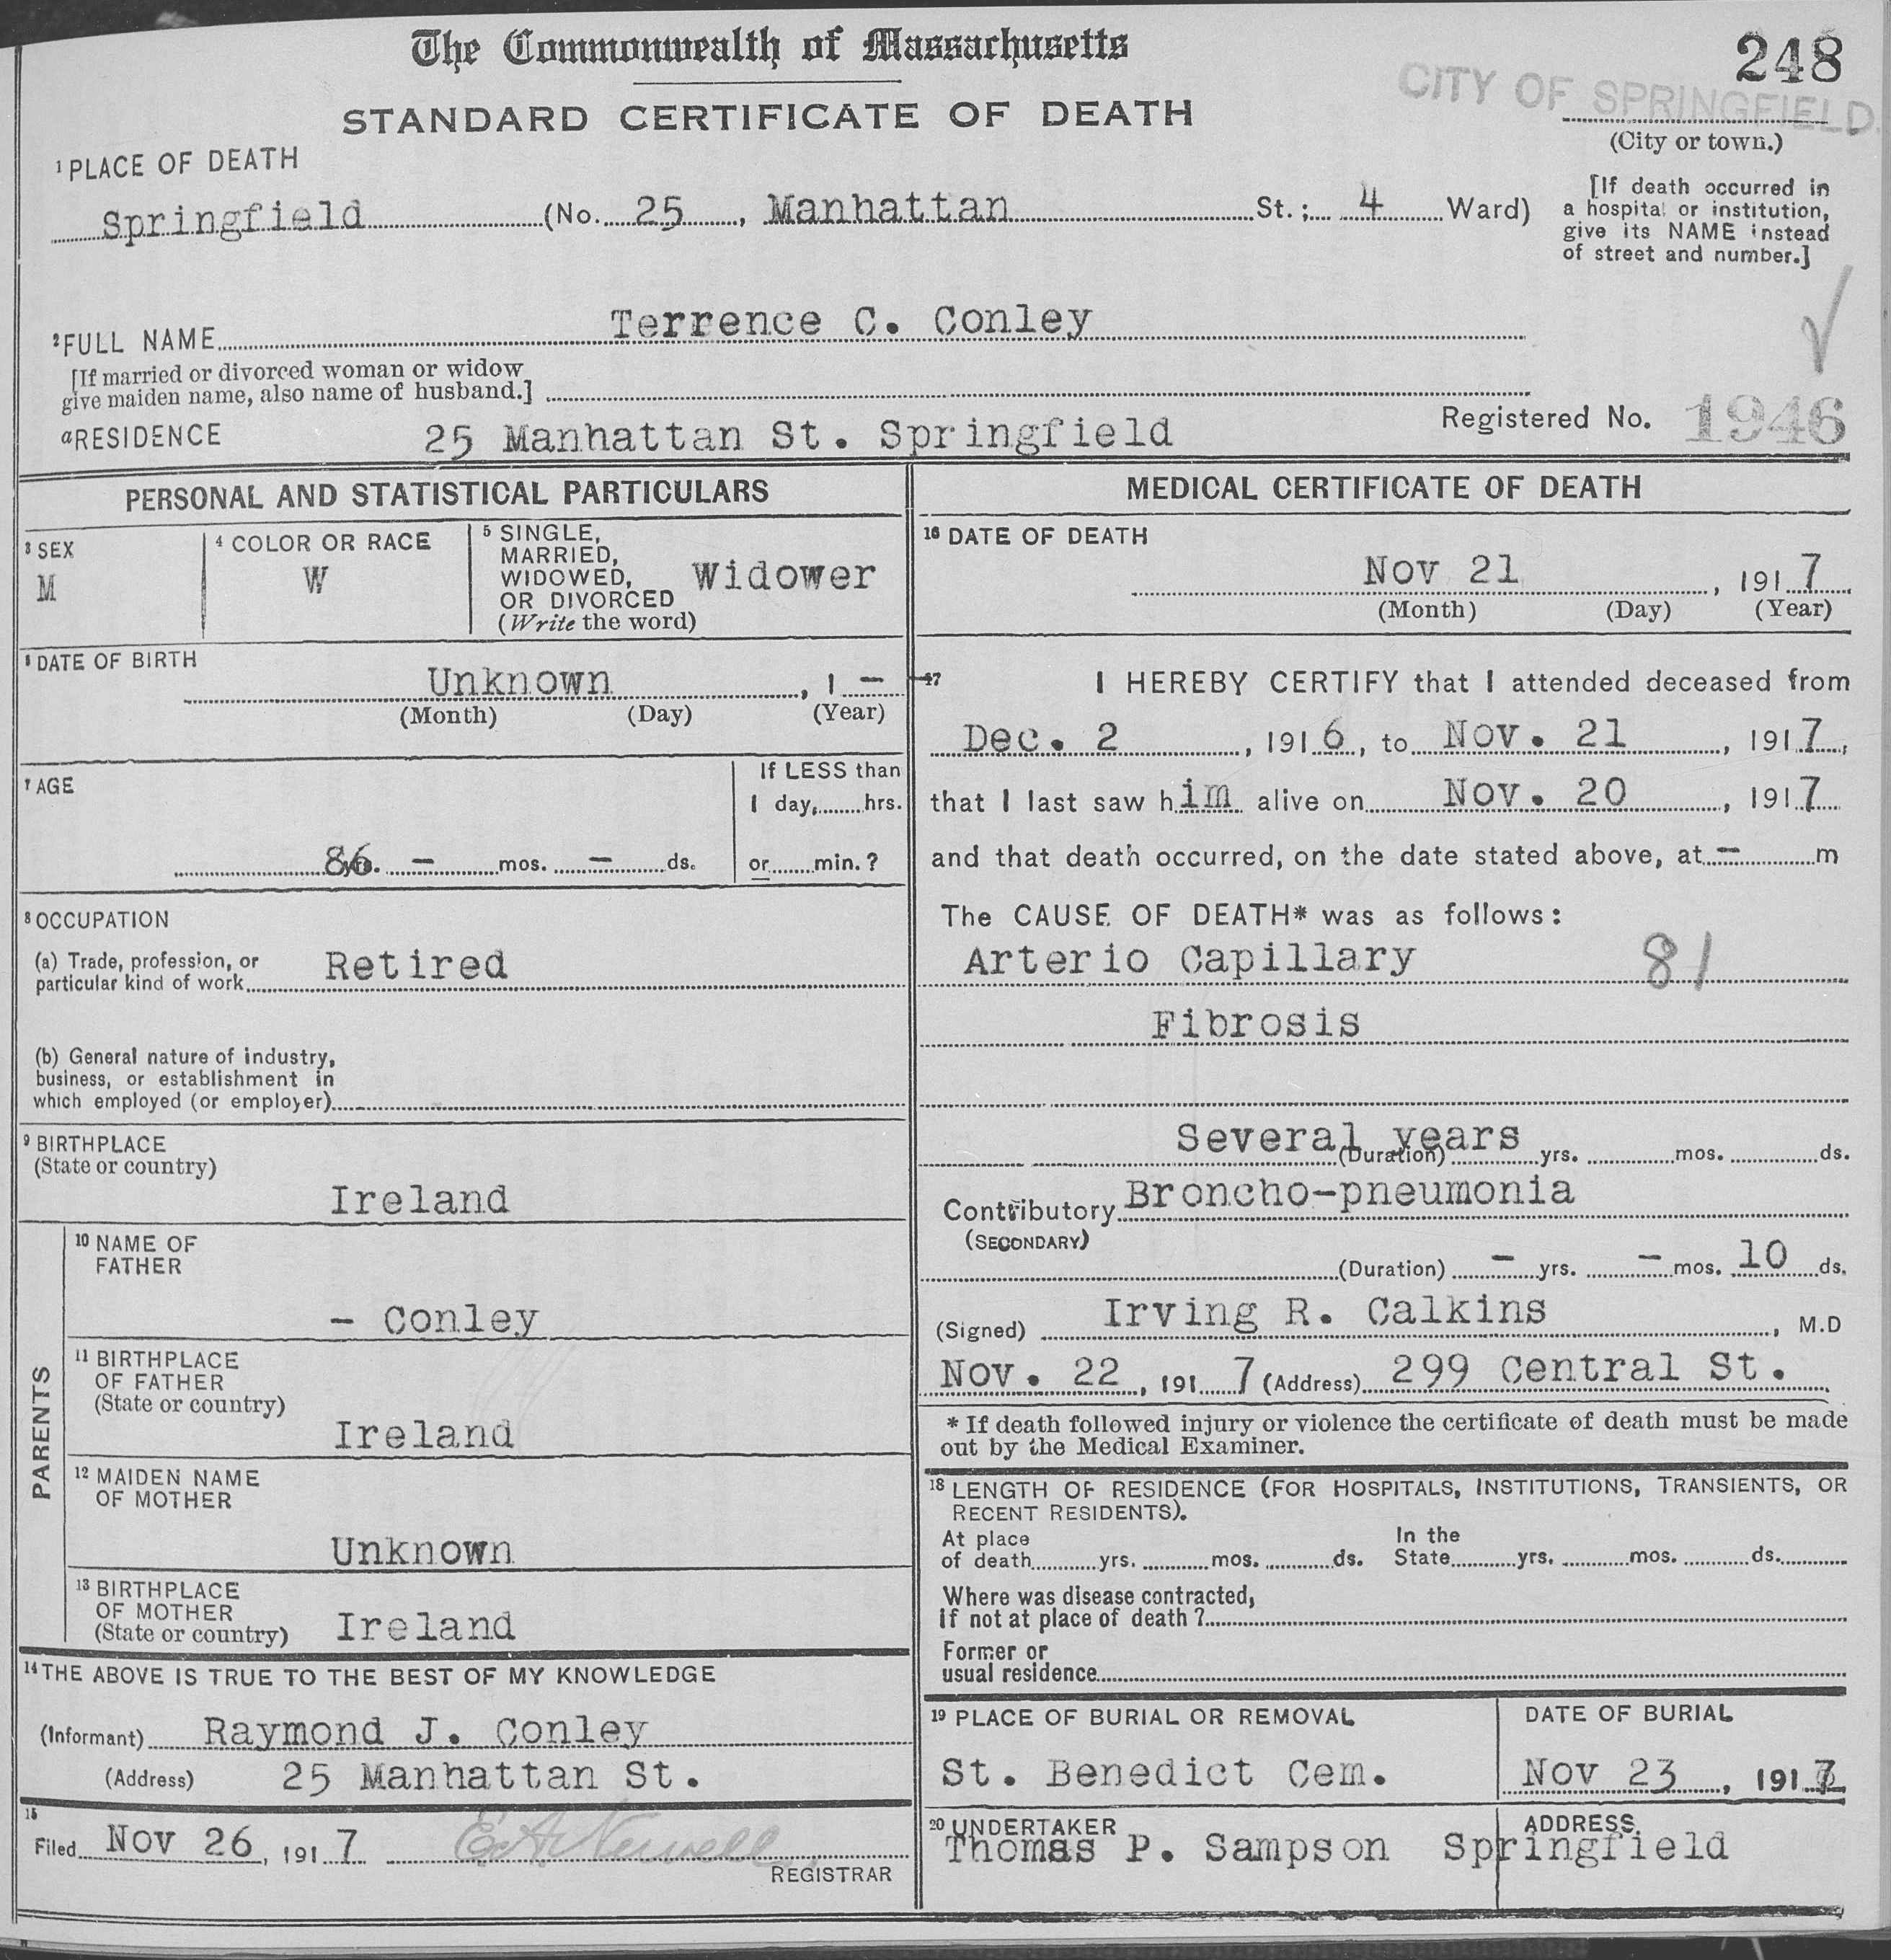 The Commonwealth of Massachusetts
248
STANDARD CERTIFICATE OF DEATH
CITY OF SPRINGFIELD.
(City or town.)
1 PLACE OF DEATH
Springfield (No. 25, Manhattan St.; 4 Ward)
[If death occurred in
a hospital or institution,
give its NAME instead
of street and number.]
2 FULL NAME Terrence C. Conley
[If married or divorced woman or widow
give maiden name, also name of husband.]
a RESIDENCE 25 Manhattan St. Springfield
Registered No. 1946
PERSONAL AND STATISTICAL PARTICULARS
3 SEX
M
4 COLOR OR RACE
W
5 SINGLE,
MARRIED,
WIDOWED,
OR DIVORCED
(Write the word)
Widower
6 DATE OF BIRTH
Unknown, 1 —
(Month) (Day) (Year)
7 AGE
86 yrs. — mos. — ds.
If LESS than
1 day, hrs.
or min.?
8 OCCUPATION
(a) Trade, profession, or
particular kind of work Retired
(b) General nature of industry,
business, or establishment in
which employed (or employer)
9 BIRTHPLACE
(State or country)
Ireland
PARENTS
10 NAME OF
FATHER
- Conley
11 BIRTHPLACE
OF FATHER
(State or country)
Ireland
12 MAIDEN NAME
OF MOTHER
Unknown
13 BIRTHPLACE
OF MOTHER
(State or country) Ireland
14 THE ABOVE IS TRUE TO THE BEST OF MY KNOWLEDGE
(Informant) Raymond J. Conley
(Address) 25 Manhattan St.
15
Filed Nov 26, 1917 E. A. Newell
REGISTRAR
MEDICAL CERTIFICATE OF DEATH
16 DATE OF DEATH
Nov 21, 1917
(Month) (Day) (Year)
17 I HEREBY CERTIFY that I attended deceased from
Dec. 2, 1916, to Nov. 21, 1917,
that I last saw him alive on Nov. 20, 1917
and that death occurred, on the date stated above, at — m
The CAUSE OF DEATH* was as follows:
Arterio Capillary 81
Fibrosis
Several years
(Duration) yrs. mos. ds.
Contributory Broncho-pneumonia
(SECONDARY)
(Duration) — yrs. — mos. 10 ds.
(Signed) Irving R. Calkins, M.D
Nov. 22, 1917 (Address) 299 Central St.
* If death followed injury or violence the certificate of death must be made
out by the Medical Examiner.
18 LENGTH OF RESIDENCE (FOR HOSPITALS, INSTITUTIONS, TRANSIENTS, OR
RECENT RESIDENTS).
At place
of death yrs. mos. ds.
In the
State yrs. mos. ds.
Where was disease contracted,
if not at place of death?
Former or
usual residence
19 PLACE OF BURIAL OR REMOVAL
St. Benedict Cem.
DATE OF BURIAL
Nov 23, 1917
20 UNDERTAKER
Thomas P. Sampson
ADDRESS.
Springfield